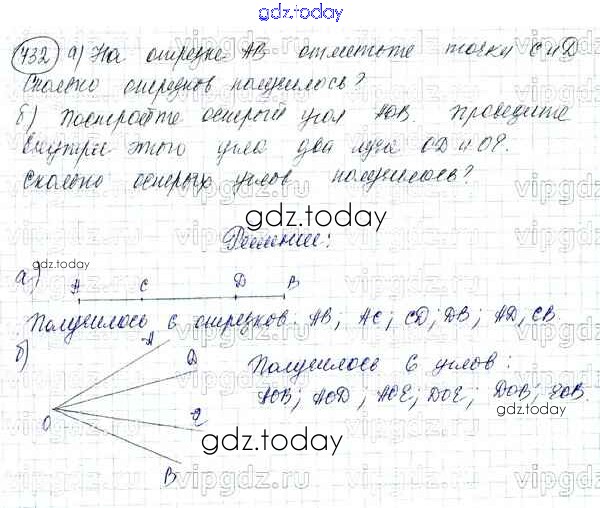 gdz.today
732 а) На отрезке АВ отметьте точки С и D
Сколько отрезков получилось?
б) Постройте острый угол АОВ. Проведите
внутри этого угла два луча OD и OE.
Сколько острых углов получилось?
gdz.today
Решение:
gdz.today
а)
А С D В
Получилось 6 отрезков: АВ; АС; СD; DB; AD, CB.
б)
А
D
О
E
В
Получилось 6 углов:
АОВ; AOD; AOE; DOE; DOB; EOB.
gdz.today
gdz.today
vipgdz